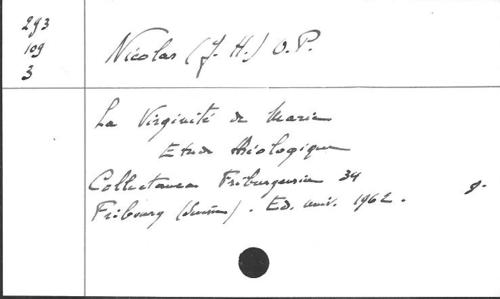 293
109
3
Nicolas (J. H.) O.P.
La Virginité de Marie
Etude théologique
Collectanea Friburgensia 34
Fribourg (Suisse). Ed. univ. 1962.